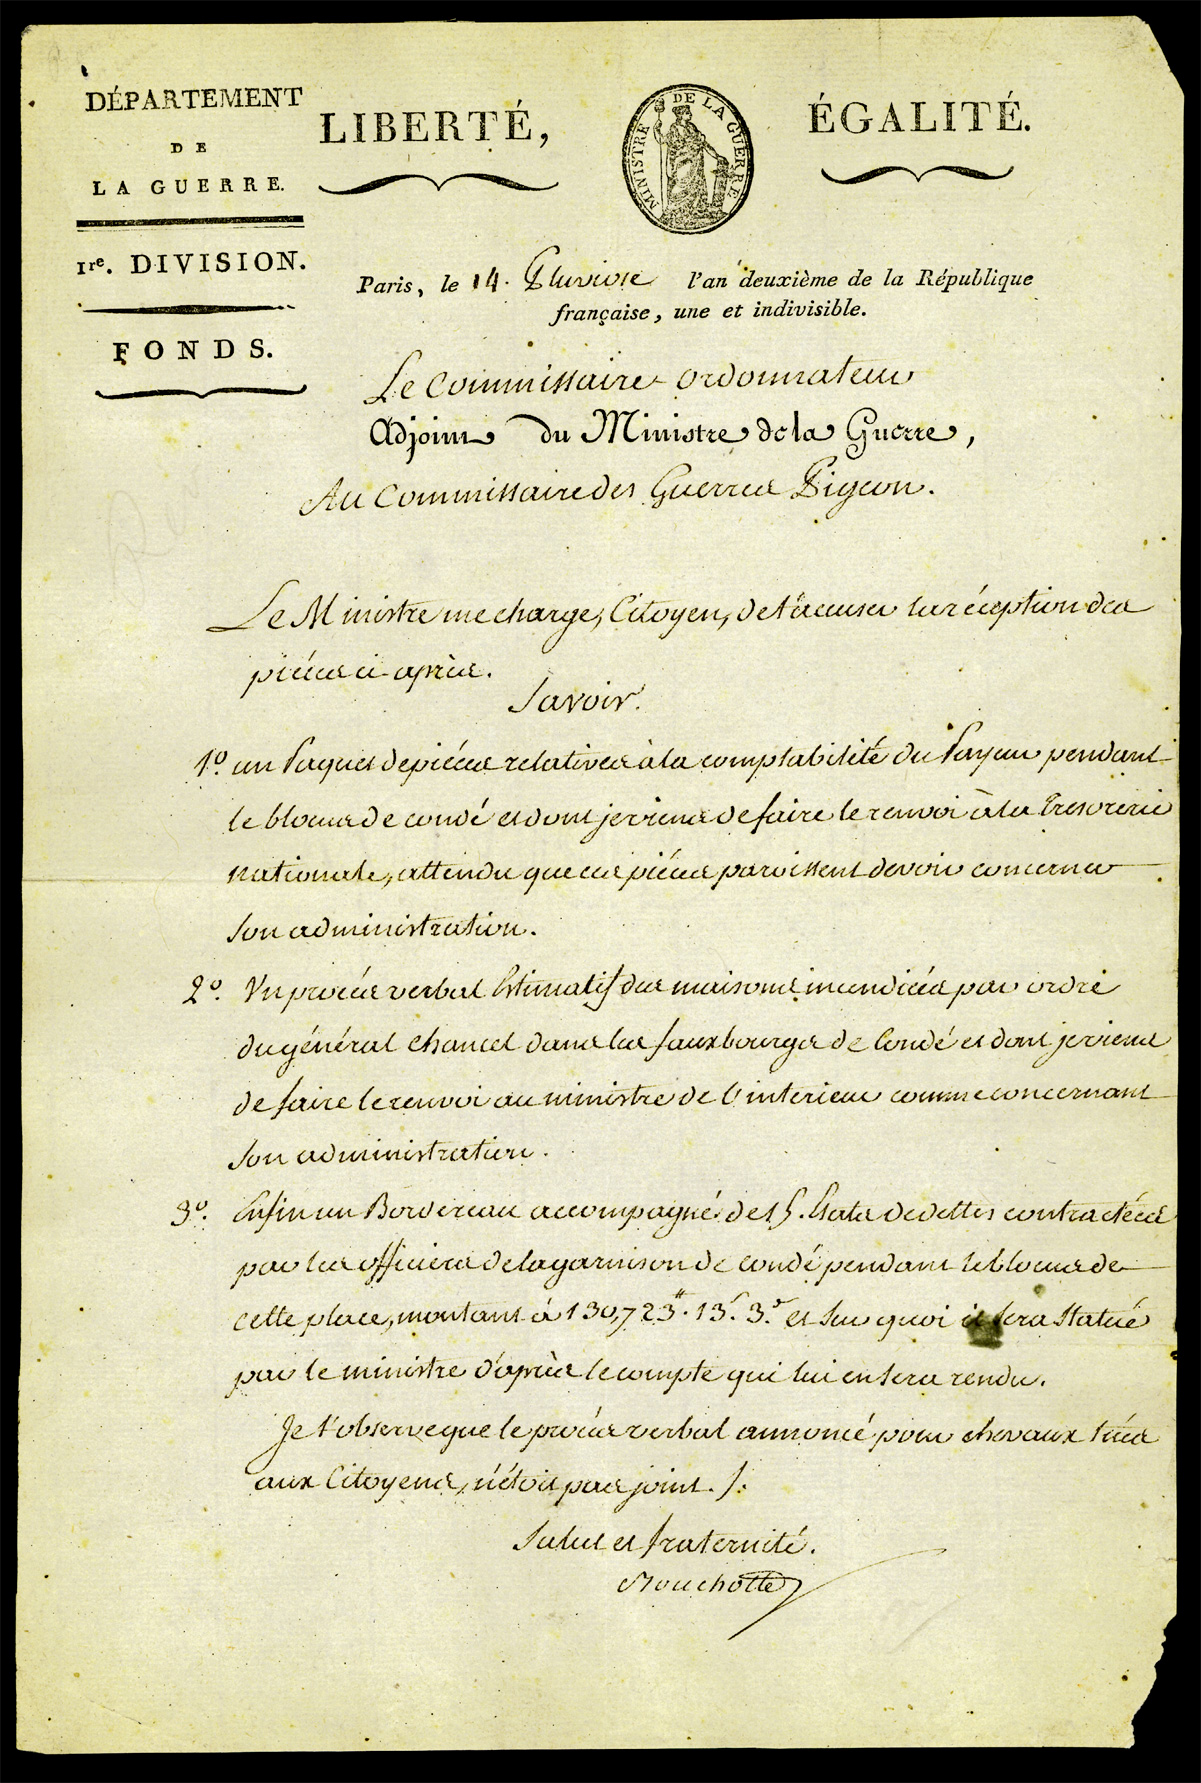 DÉPARTEMENT
DE
LA GUERRE.
Ire. DIVISION.
FONDS.
LIBERTÉ,
MINISTRE DE LA GUERRE
ÉGALITÉ.
Paris, le 14. Pluviose l'an deuxième de la République
française, une et indivisible.
Le Commissaire ordonnateur
Adjoint du Ministre de la Guerre,
Au Commissaire des Guerres Pigeon.
Le Ministre me charge, Citoyen, de t'accuser la réception des
piéces ci après.
Savoir.
1º. un Paquet de piéces relatives à la comptabilité du Payeur pendant
le blocus de condé et dont je viens de faire le renvoi à la Tresorerie
nationale, attendu que ces piéces paroissent devoir concerner
son administration.
2º. Un procés verbal Estimatif des maisons incendiées par ordre
du général Chancel dans les fauxbourgs de Condé et dont je viens
de faire le renvoi au ministre de l'interieur comme concernant
son administration.
3º. Enfin un Bordereau accompagné de 15. Etats de dettes contractées
par les officiers de la garnison de condé pendant le blocus de
cette place, montant à 130,723.tt 13.s 3.d et sur quoi il sera Statué
par le ministre d'après le compte qui lui en sera rendu.
Je t'observe que le procés verbal annoncé pour chevaux tués
aux Citoyens, n'étoit pas joint. /.
Salut et fraternité.
Bouchotte